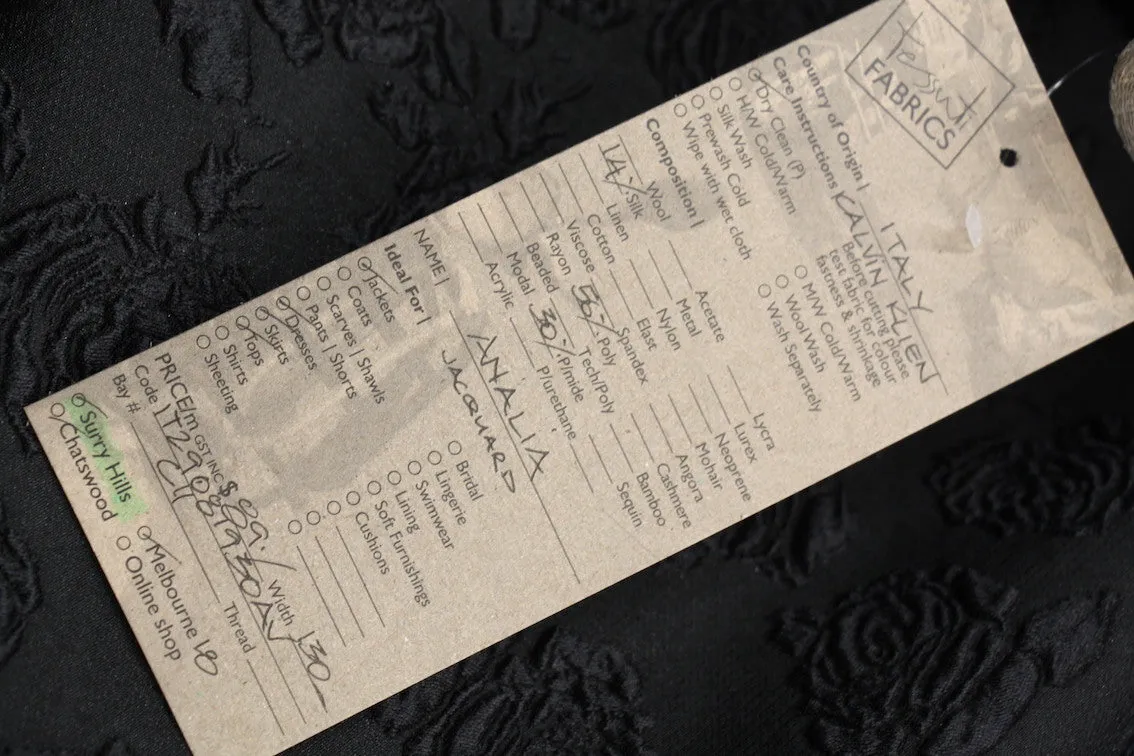 tessuti
FABRICS
Country of Origin | ITALY
Care Instructions KALVIN KLIEN
Dry Clean (P)
H/W Cold/Warm
Silk Wash
Prewash Cold
Wipe with wet cloth
Before cutting please
test fabric for colour
fastness & shrinkage
M/W Cold/Warm
Wool Wash
Wash Separately
Composition |
Wool
14% Silk
Linen
Cotton
Viscose
Rayon
Beaded
Modal
Acrylic
Acetate
Metal
Nylon
Elast
Spandex
56% Poly
Tech/Poly
30% P/mide
P/urethane
Lycra
Lurex
Neoprene
Mohair
Angora
Cashmere
Bamboo
Sequin
NAME | ANALIA
JACQUARD
Ideal For |
Jackets
Coats
Scarves | Shawls
Pants | Shorts
Dresses
Skirts
Tops
Shirts
Sheeting
Bridal
Lingerie
Swimwear
Lining
Soft Furnishings
Cushions
PRICE/m GST INC $89. Width 130
Code
Bay # Thread
Surry Hills
Chatswood
Melbourne
Online shop